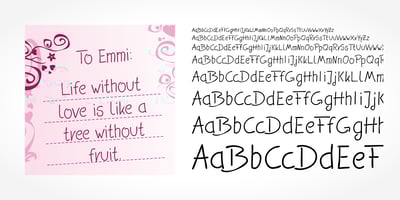 To Emmi:
Life without
love is like a
tree without
fruit.
AaBbCcDdEeFfGgHhIiJjKkLlMmNnOoPpQqRrSsTtUuVvWwXxYyZz
AaBbCcDdEeFfGgHhIiJjKkLlMmNnOoPpQqRrSsTtUuVvWwXxYyZz
AaBbCcDdEeFfGgHhIiJjKkLlMmNnOoPpQqRrSsTtU
AaBbCcDdEeFfGgHhIiJjKkLlMmNnOoPp
AaBbCcDdEeFfGgHhIiJjKkLlMm
AaBbCcDdEeFfGgHhIiJjK
AaBbCcDdEeFfGgHh
AaBbCcDdEeF